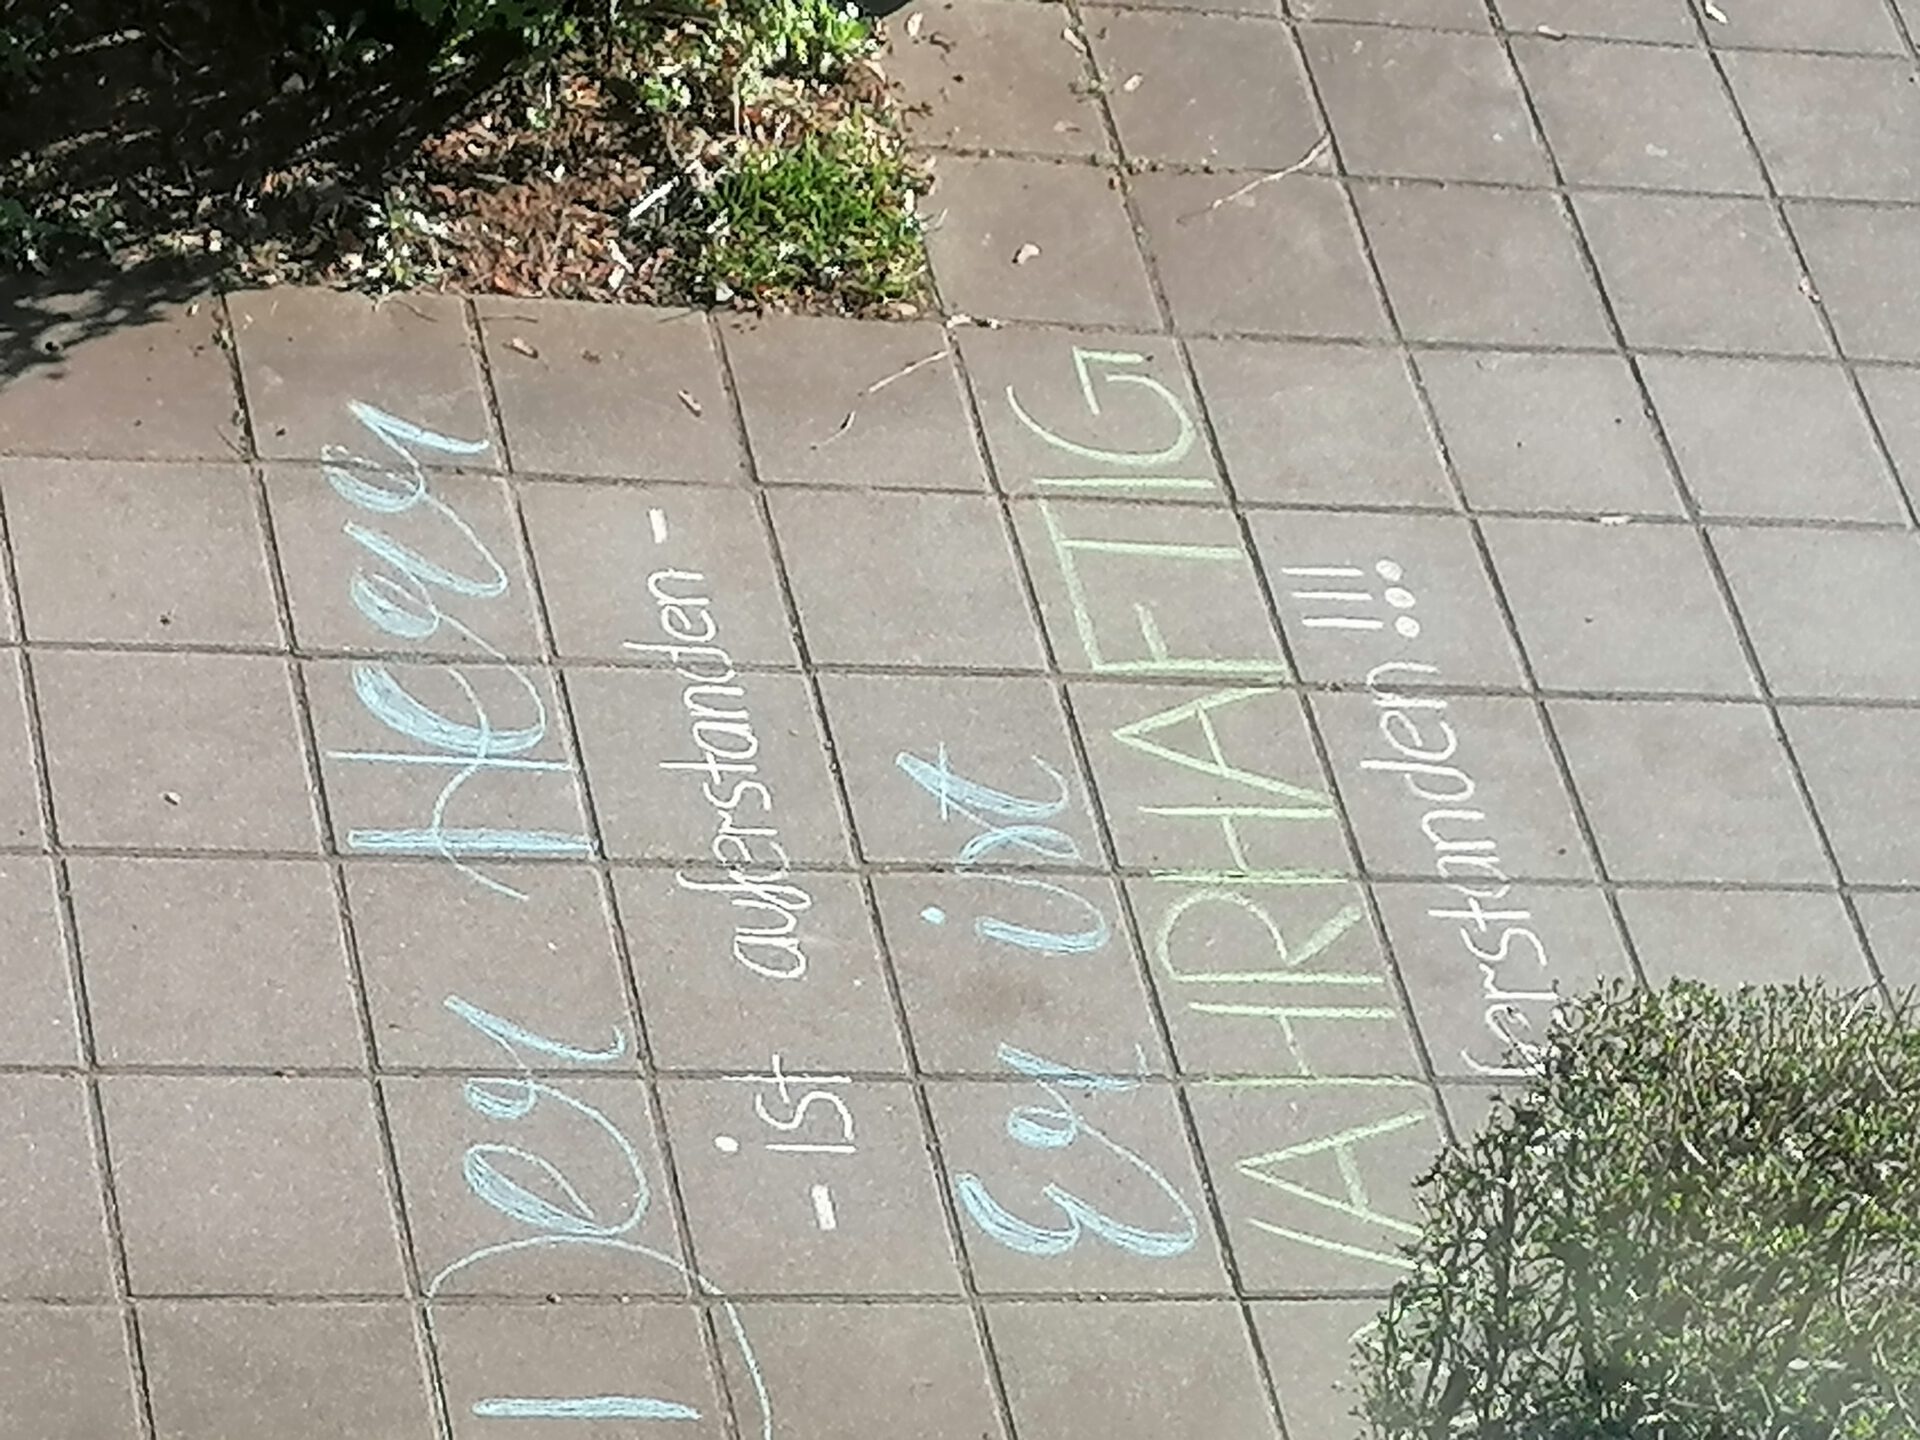 Der Herr
- ist auferstanden -
Er ist
WAHRHAFTIG
ferstanden !!!